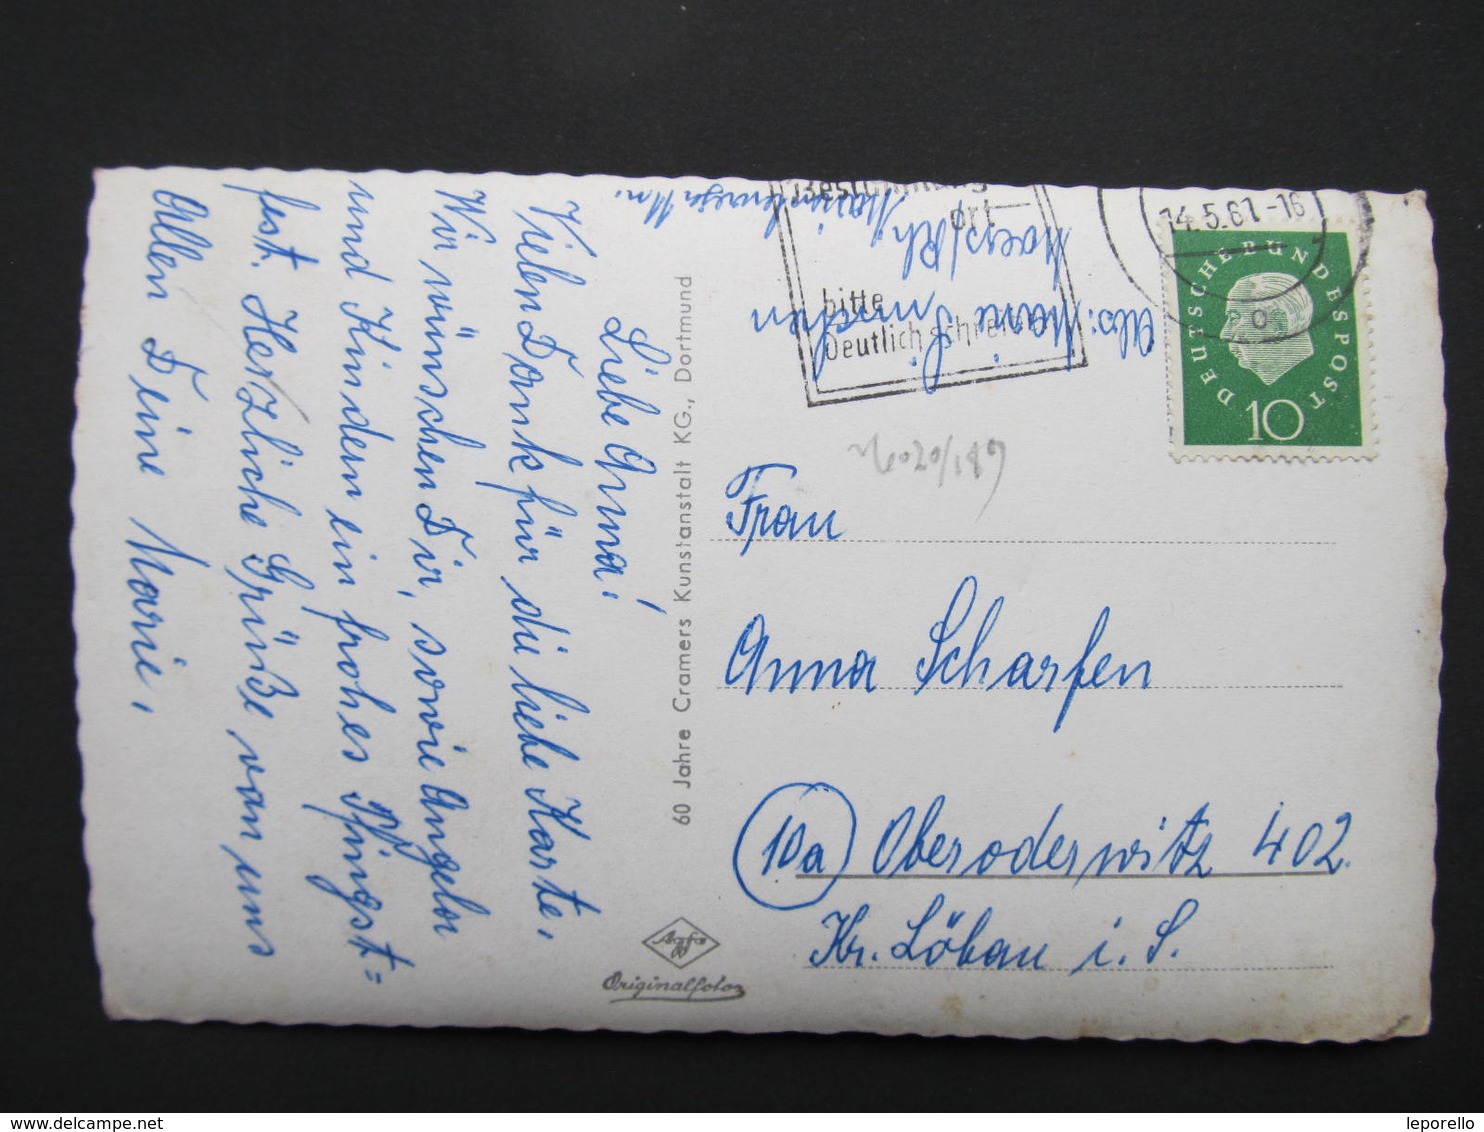 Liebe Anna!
Vielen Dank für die liebe Karte,
Wir wünschen Dir, sowie Angela
und Kindern ein frohes Pfingst=
fest. Herzliche Grüße von uns
Allen Deine Marie.
60 Jahre Cramers Kunstanstalt KG., Dortmund
Agfa
Originalfoto
Abs: Marie
Moers/Rh
Bestimmung
ort
bitte
Deutlich schreiben
14.5.61-16
DEUTSCHE BUNDESPOST
10
Frau
Anna Scharfen
10a Oberoderwitz 402
Kr. Löbau i. S.
www.delcampe.net
leporello